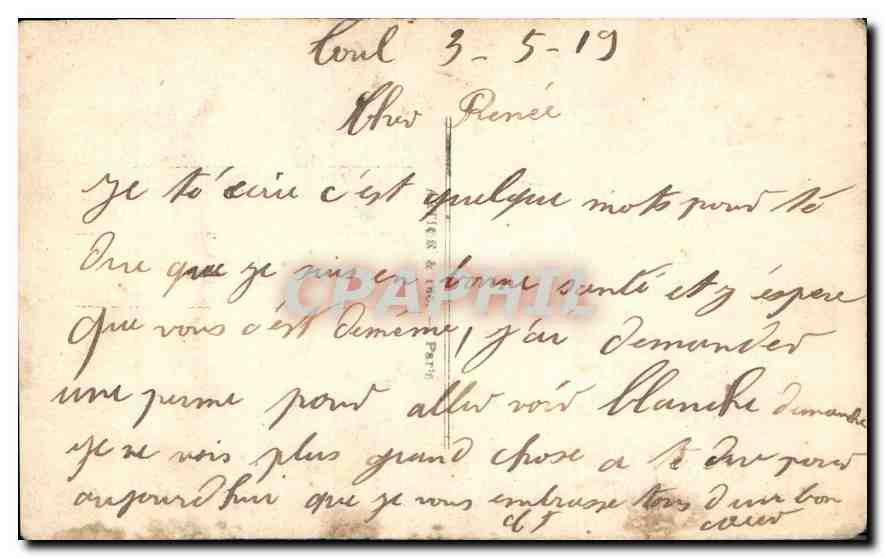 Toul 3-5-19
Cher Renée
Je té écrie c'est quelque mots pour té
dire que je suis en bonne santé et j éspere
que vous c'est demême, j'ai demander
une perme pour aller voir Blanche dimanche
je ne vois plus grand chose a te dire pour
aujourd'hui que je vous embrasse tous d'un bon
cœur
& Paris
CPAPHIL